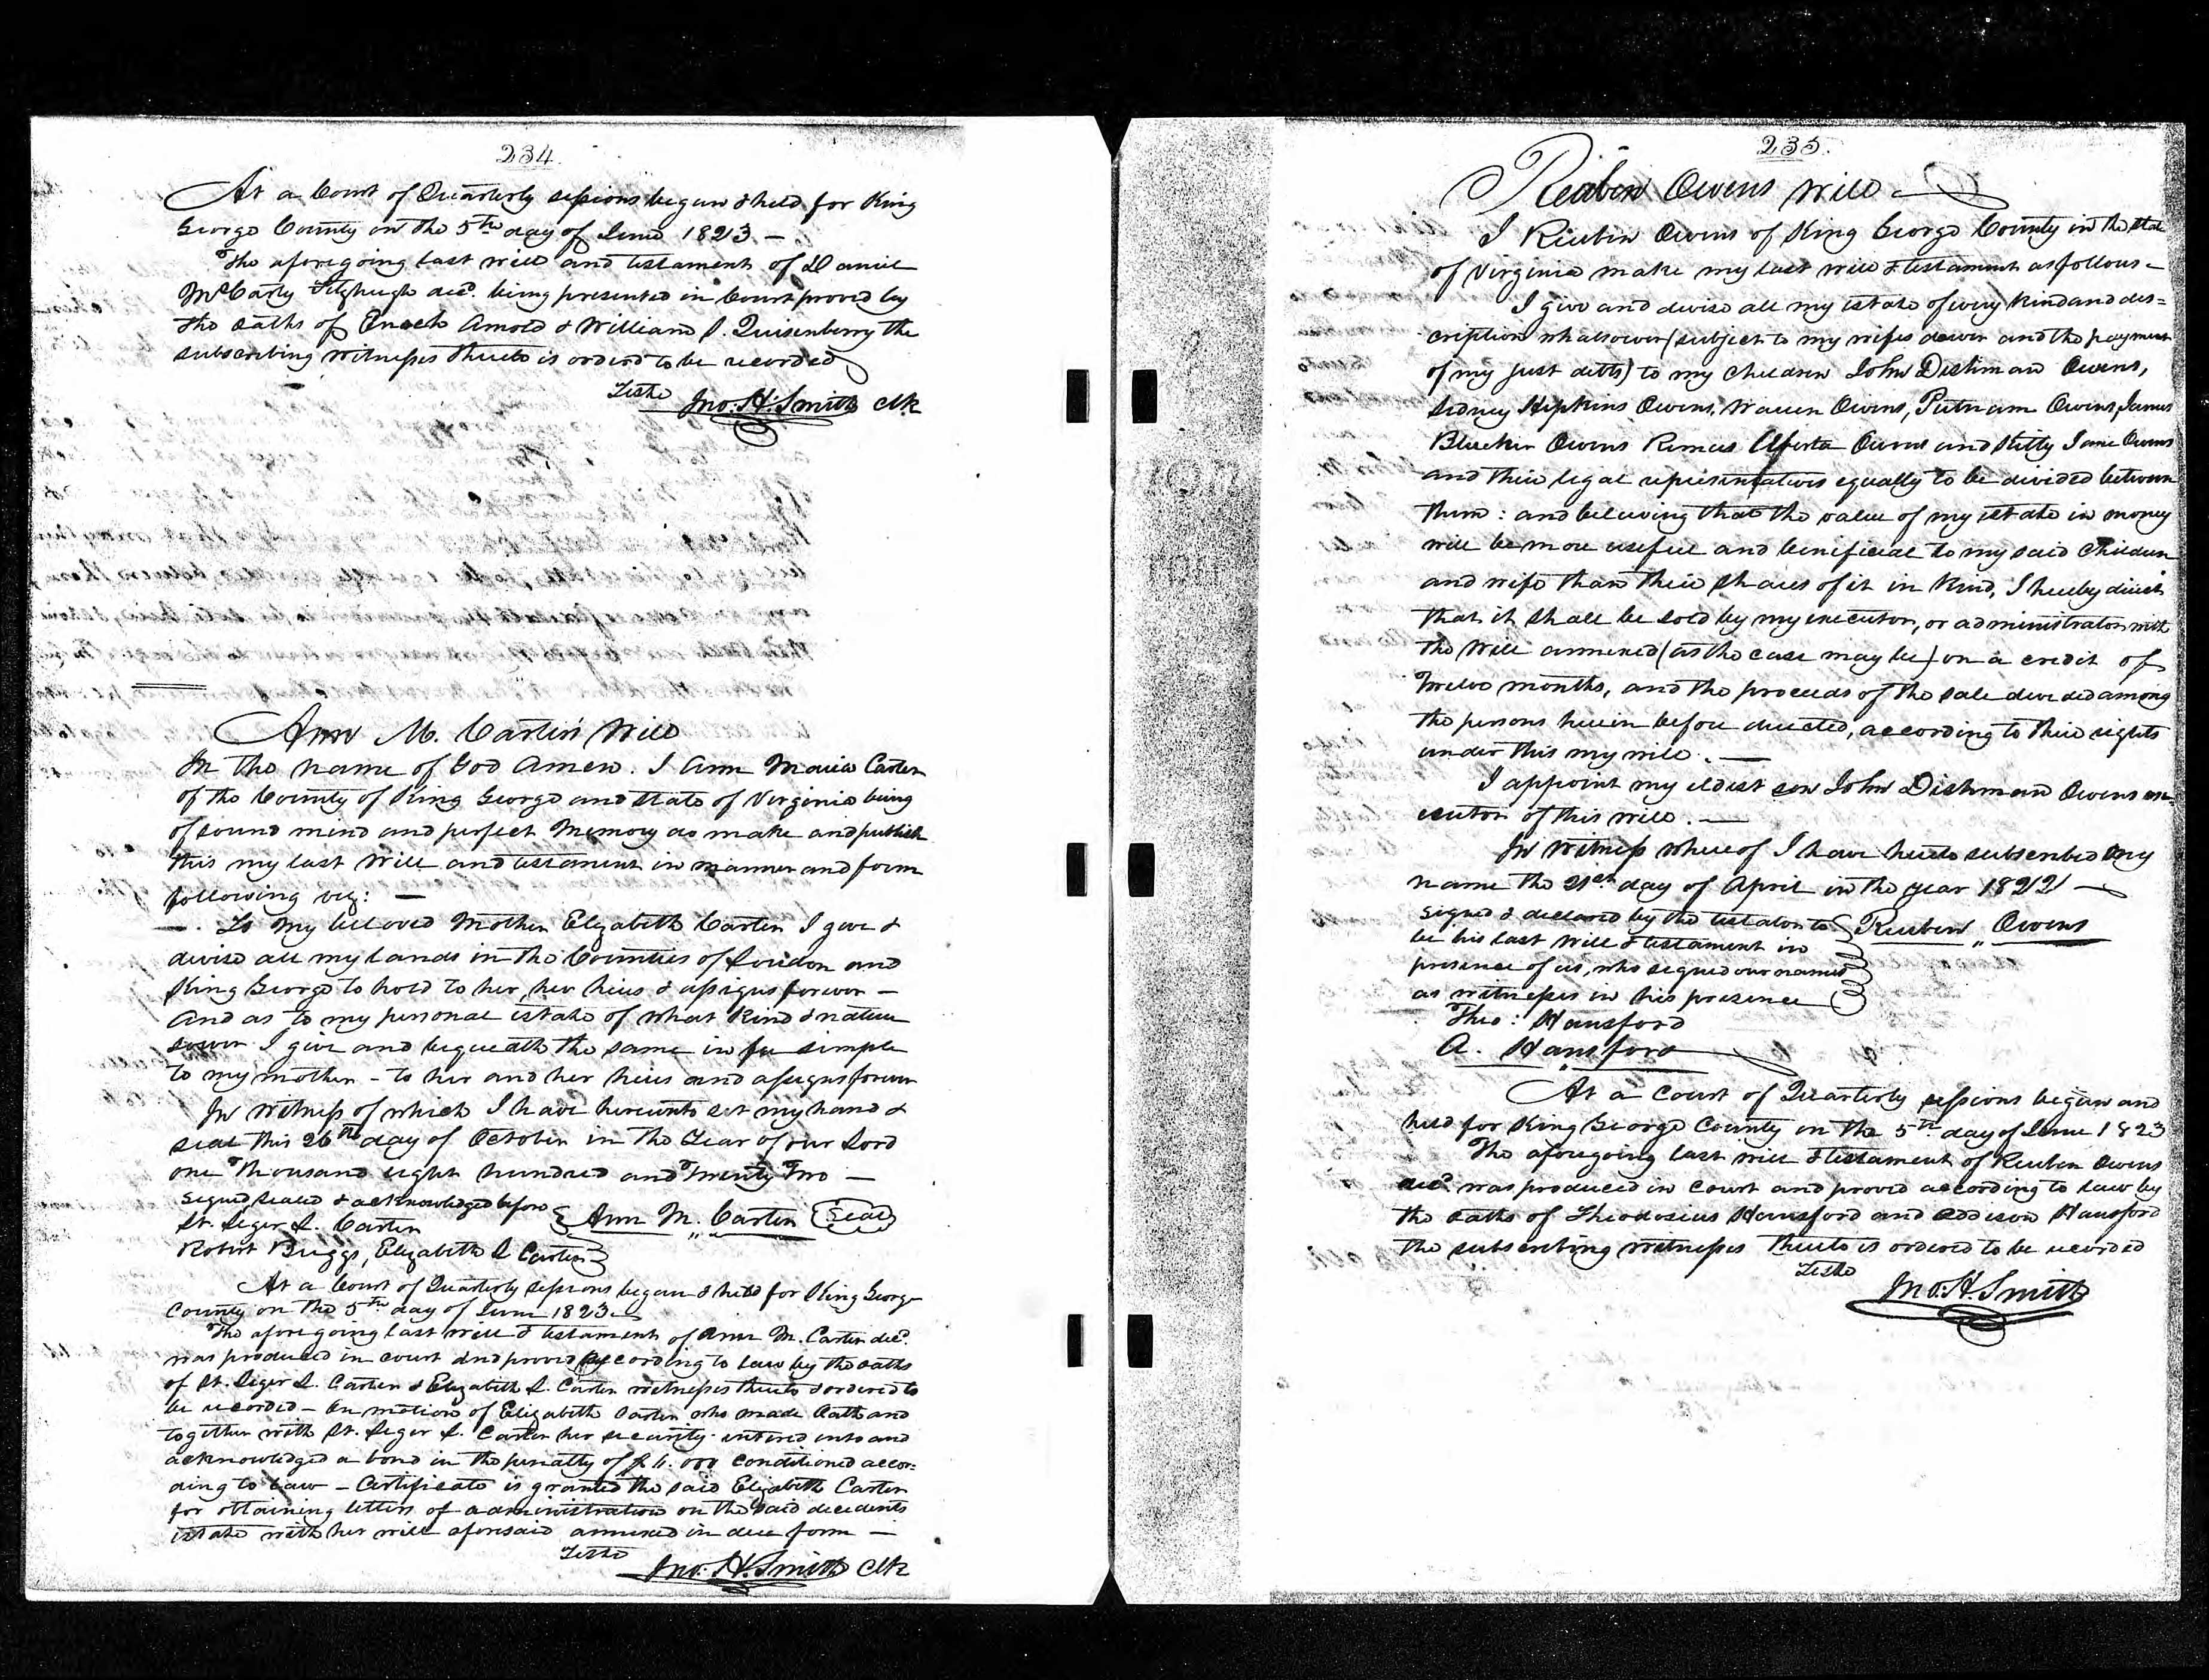 234.
At a Court of Quarterly sessions began & held for King
George County on the 5th day of June 1823. —
The aforegoing last will and testament of Daniel
McCarty Fitzhugh decd. being presented in Court proved by
the oaths of Enoch Arnold & William S. Quisenberry the
subscribing witnesses thereto is orderd to be recorded
Teste
Jno: H: Smith Clk
Ann M. Carter's Will
In the name of God Amen. I Ann Maria Carter
of the County of King George and state of Virginia being
of sound mind and perfect Memory do make and publish
this my last Will and testament in manner and form
following viz: —
— . To my beloved Mother Elizabeth Carter I give &
devise all my Lands in the Counties of Loudon and
King George to hold to her, her heirs & assigns forever —
And as to my personal estate of what kind & nature
soever I give and bequeath the same in fee simple
to my mother - to her and her heirs and assigns forever
In Witness of which I have hereunto set my hand &
seal this 26th day of October in the Year of our Lord
one Thousand eight hundred and Twenty Two —
Signed, sealed & acknowledged before
St. Leger L. Carter
Ann M. Carter Seal
Robert Briggs, Elizabeth L Carter
At a Court of Quarterly Sessions began & held for King George
County on the 5th day of June 1823.
The aforegoing last Will & testament of Ann M. Carter decd.
was produced in court and proved according to law by the oaths
of St. Leger L. Carter & Elizabeth L. Carter witnesses thereto & ordered to
be recorded — On motion of Elizabeth Carter who made Oath and
together with St. Leger L. Carter her security entered into and
acknowledged a bond in the penalty of conditioned accor-
ding to Law — Certificate is granted the said Elizabeth Carter
for obtaining letters of administration on the said decedents
estate with her will aforesaid annexed in due form —
Teste
Jno. H. Smith Clk
235.
Reuben Owens Will
I Reuben Owens of King George County in the state
of Virginia make my last will & testament as follows —
I give and devise all my estate of every kind and des=
cription whatsoever (subject to my wifes dower and the payment
of my just debts) to my children John Dishman Owens,
Sidney Hipkins Owens, Warren Owens, Putnam Owens, James
Blucher Owens Remus Owens and Kitty Jane Owens
and their legal representatives equally to be divided between
them : and believing that the value of my estate in money
will be more useful and beneficial to my said Children
and wife than their shares of it in Kind, I hereby direct
that it shall be sold by my executor, or administrator with
the Will annexed (as the case may be) on a credit of
Twelve months, and the proceeds of the sale divided among
the persons herein before directed, according to their rights
under this my will . —
I appoint my eldest son John Dishman Owens ex-
ecutor of this will . —
In Witness whereof I have hereto subscribed my
name the 21st day of April in the year 1822 —
Signed & declared by the testator to
be his last Will & testament in
presence of us, who signed our names
as witnesses in his presence
Reuben Owens
Theo: Hansford
A. Hansford
At a Court of Quarterly sessions began and
held for King George County on the 5th day of June 1823
The aforegoing last will & testament of Reuben Owens
decd. was produced in Court and proved according to law by
the oaths of Theodosius Hansford and Addison Hansford
the subscribing witnesses thereto is ordered to be recorded
Teste
Jno: H. Smith